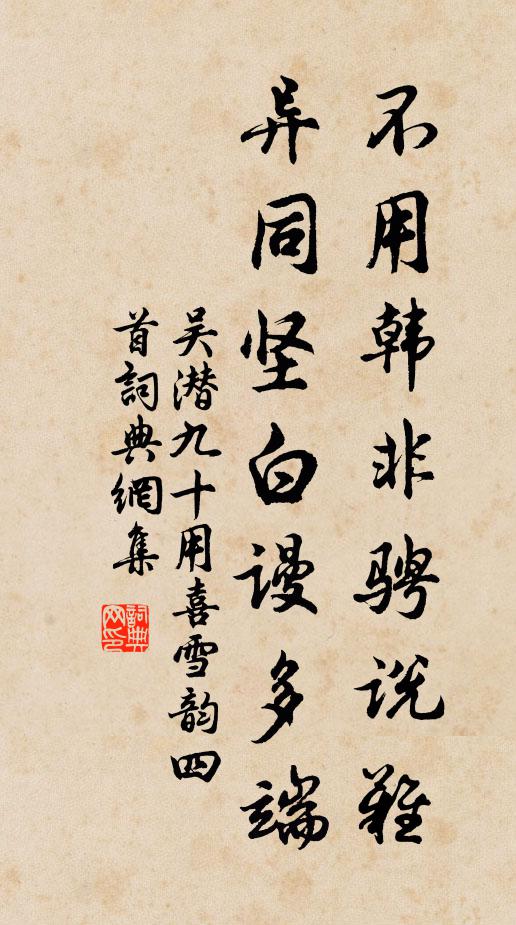 不用韩非骋说难
异同坚白谩多端
吴潜九十用喜雪韵四
首詞典網集
詞典
网印